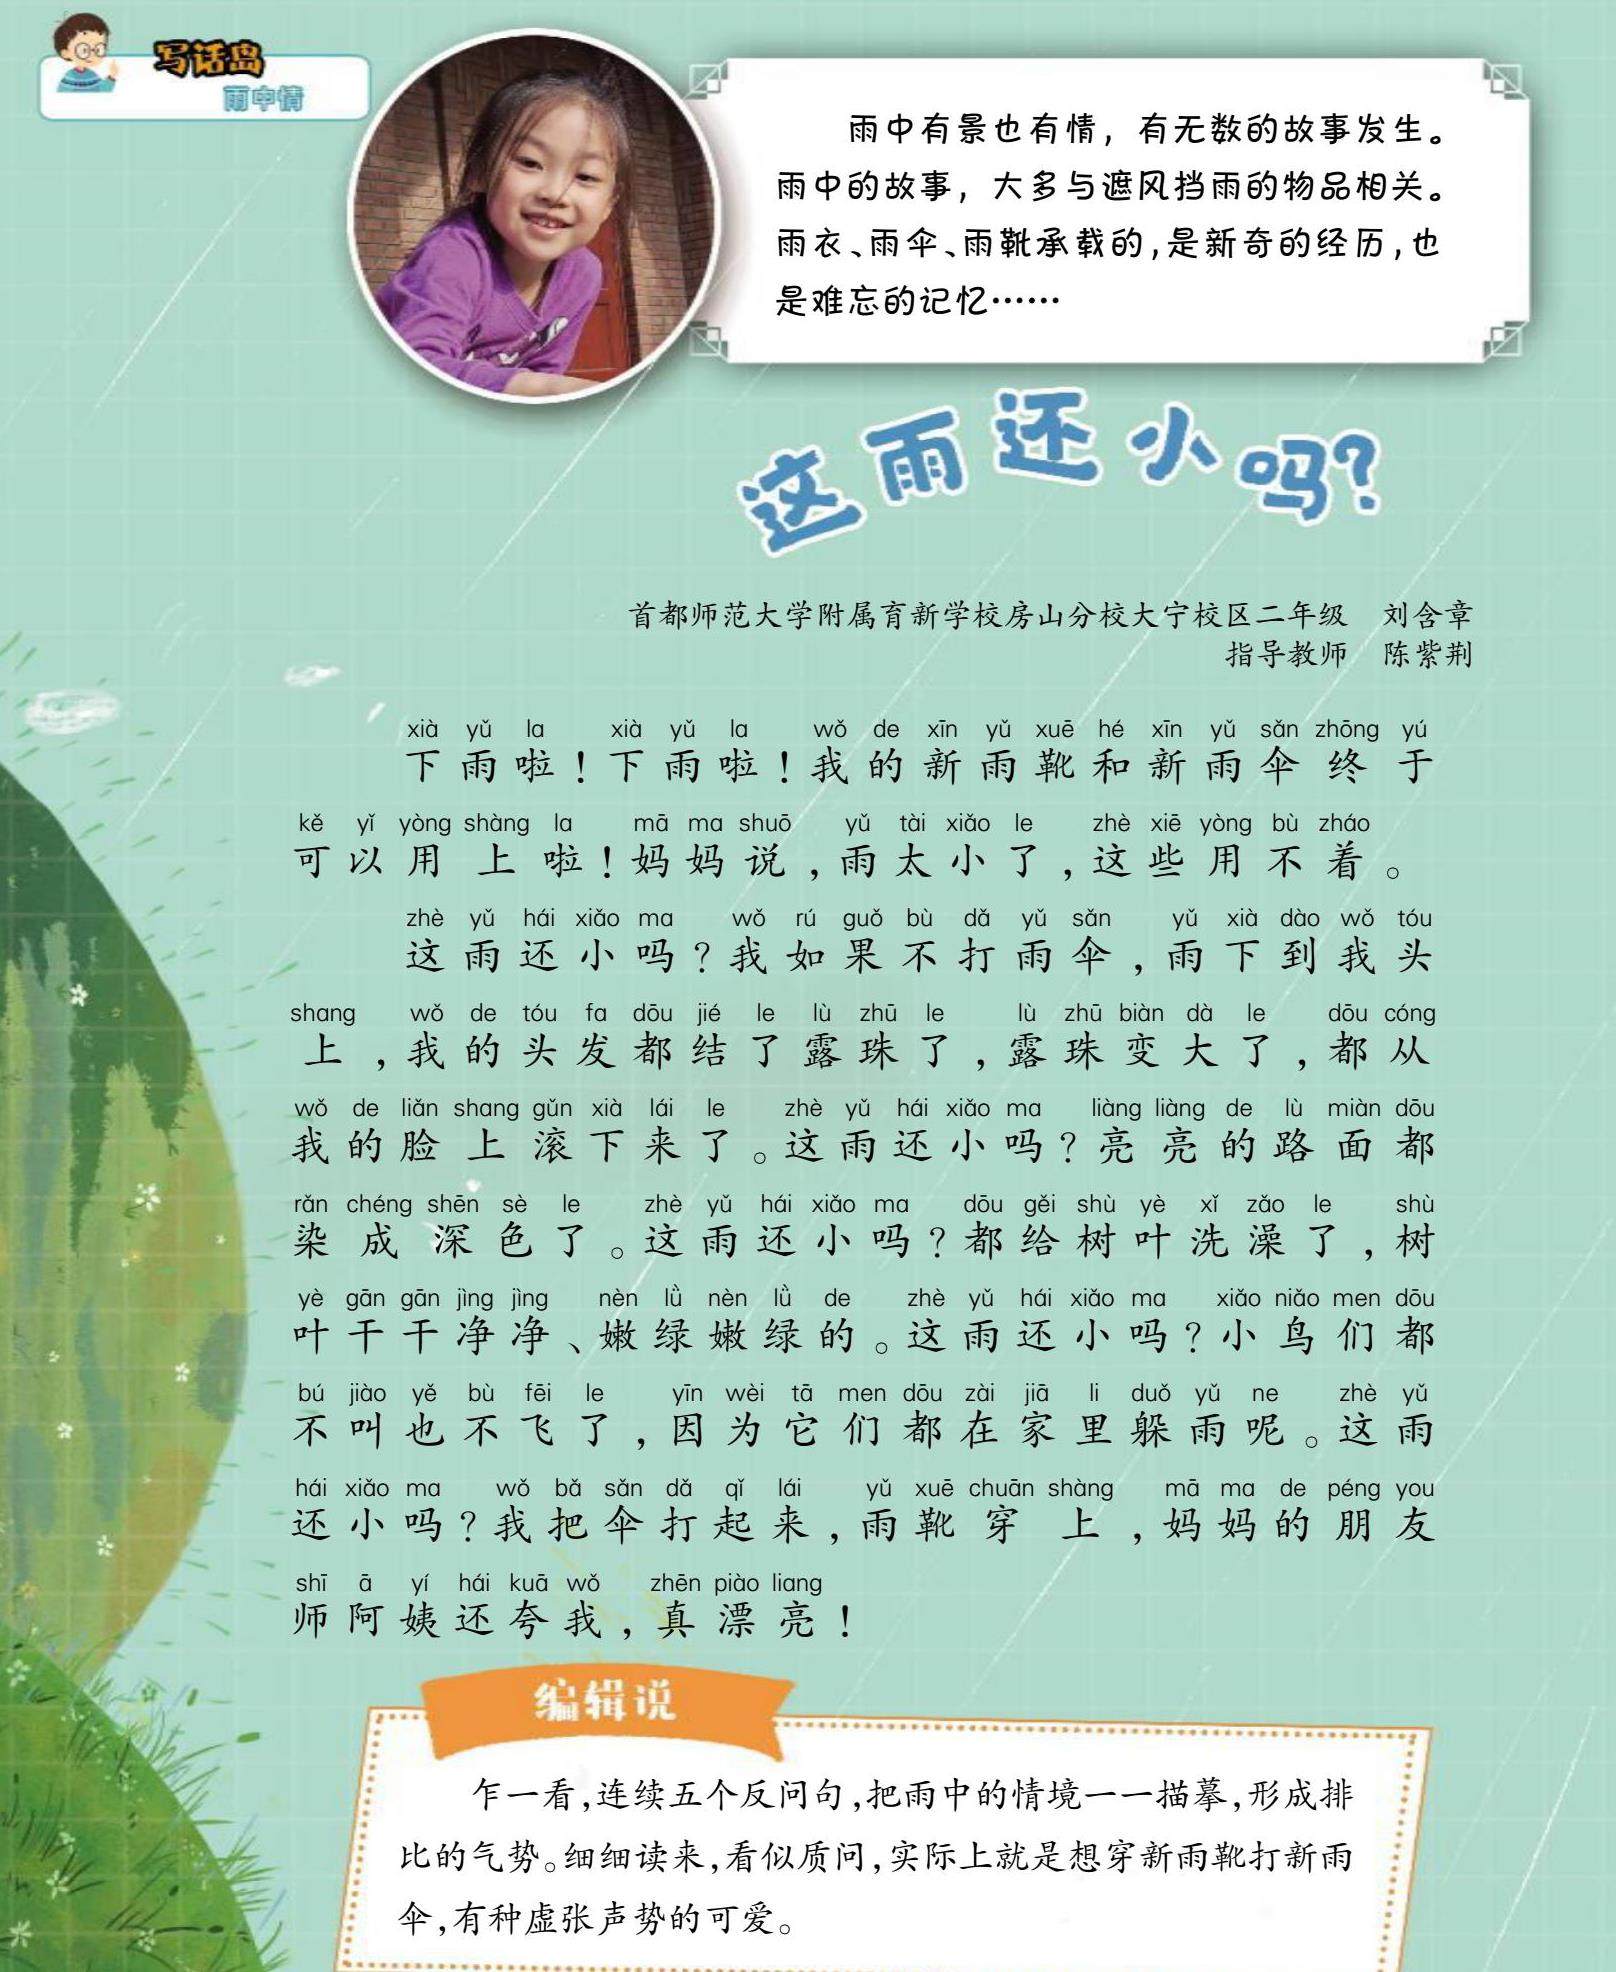 写话岛
雨中情
雨中有景也有情，有无数的故事发生。
雨中的故事，大多与遮风挡雨的物品相关。
雨衣、雨伞、雨靴承载的，是新奇的经历，也
是难忘的记忆……
这雨还小吗？
首都师范大学附属育新学校房山分校大宁校区二年级 刘含章
指导教师 陈紫荆
xià yǔ la xià yǔ la wǒ de xīn yǔ xuē hé xīn yǔ sǎn zhōng yú
下雨啦！下雨啦！我的新雨靴和新雨伞终于
kě yǐ yòng shàng la mā ma shuō yǔ tài xiǎo le zhè xiē yòng bù zháo
可以用上啦！妈妈说，雨太小了，这些用不着。
zhè yǔ hái xiǎo ma wǒ rú guǒ bù dǎ yǔ sǎn yǔ xià dào wǒ tóu
这雨还小吗？我如果不打雨伞，雨下到我头
shang wǒ de tóu fa dōu jié le lù zhū le lù zhū biàn dà le dōu cóng
上，我的头发都结了露珠了，露珠变大了，都从
wǒ de liǎn shang gǔn xià lái le zhè yǔ hái xiǎo ma liàng liàng de lù miàn dōu
我的脸上滚下来了。这雨还小吗？亮亮的路面都
rǎn chéng shēn sè le zhè yǔ hái xiǎo ma dōu gěi shù yè xǐ zǎo le shù
染成深色了。这雨还小吗？都给树叶洗澡了，树
yè gān gān jìng jìng nèn lǜ nèn lǜ de zhè yǔ hái xiǎo ma xiǎo niǎo men dōu
叶干干净净、嫩绿嫩绿的。这雨还小吗？小鸟们都
bú jiào yě bù fēi le yīn wèi tā men dōu zài jiā li duǒ yǔ ne zhè yǔ
不叫也不飞了，因为它们都在家里躲雨呢。这雨
hái xiǎo ma wǒ bǎ sǎn dǎ qǐ lái yǔ xuē chuān shàng mā ma de péng you
还小吗？我把伞打起来，雨靴穿上，妈妈的朋友
shī ā yí hái kuā wǒ zhēn piào liang
师阿姨还夸我，真漂亮！
编辑说
乍一看，连续五个反问句，把雨中的情境一一描摹，形成排
比的气势。细细读来，看似质问，实际上就是想穿新雨靴打新雨
伞，有种虚张声势的可爱。